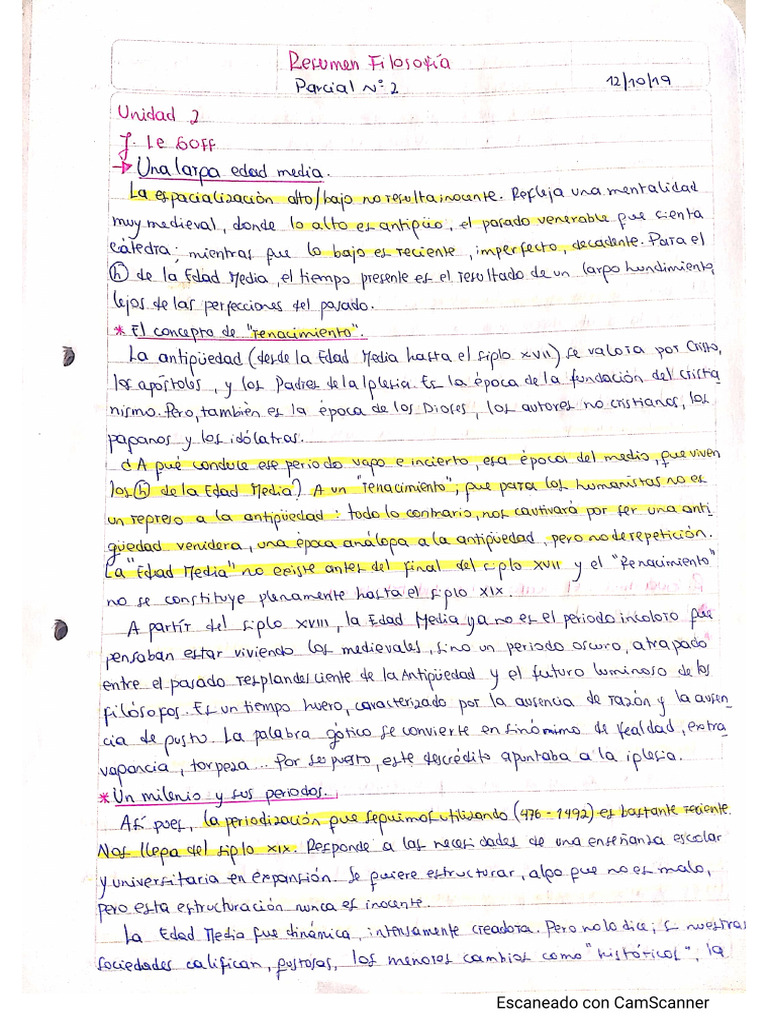 Resumen Filosofía
Parcial N° 2 12/10/19
Unidad 2
J. Le Goff
→ Una larga edad media.
La espacialización alto/bajo no resulta inocente. Refleja una mentalidad
muy medieval, donde lo alto es antigüo, el pasado venerable que cienta
cátedra; mientras que lo bajo es reciente, imperfecto, decadente. Para el
(h) de la Edad Media, el tiempo presente es el resultado de un largo hundimiento,
lejos de las perfecciones del pasado.
* El concepto de "renacimiento".
La antigüedad (desde la Edad Media hasta el siglo XVII) se valora por Cristo,
los apóstoles, y los Padres de la Iglesia. Es la época de la fundación del cristia
nismo. Pero, también es la época de los Dioses, los autores no cristianos, los
paganos y los idólatras.
¿A qué conduce ese periodo vago e incierto, esa época del medio, que viven
los (h) de la Edad Media? A un "renacimiento", que para los humanistas no es
un regreso a la antigüedad: todo lo contrario, nos cautivará por ser una anti
güedad venidera, una época análoga a la antigüedad, pero no de repetición.
La "Edad Media" no existe antes del final del siglo XVII y el "Renacimiento"
no se constituye plenamente hasta el siglo XIX.
A partir del siglo XVIII, la Edad Media ya no es el periodo incoloro que
pensaban estar viviendo los medievales, sino un periodo oscuro, atrapado
entre el pasado resplandesciente de la Antigüedad y el futuro luminoso de los
filósofos. Es un tiempo huero, caracterizado por la ausencia de razón y la ausen
cia de gusto. La palabra gótico se convierte en sinónimo de fealdad, extra
vagancia, torpeza... Por supuesto, este descrédito apuntaba a la iglesia.
* Un milenio y sus periodos.
Así pues, la periodización que seguimos utilizando (476 - 1492) es bastante reciente.
Nos llega del siglo XIX. Responde a las necesidades de una enseñanza escolar
y universitaria en expansión. Se quiere estructurar, algo que no es malo,
pero esta estructuración nunca es inocente.
La Edad Media fue dinámica, intensamente creadora. Pero no lo dice; si nuestras
sociedades califican, gustosas, los menores cambios como "históricos", la
Escaneado con CamScanner